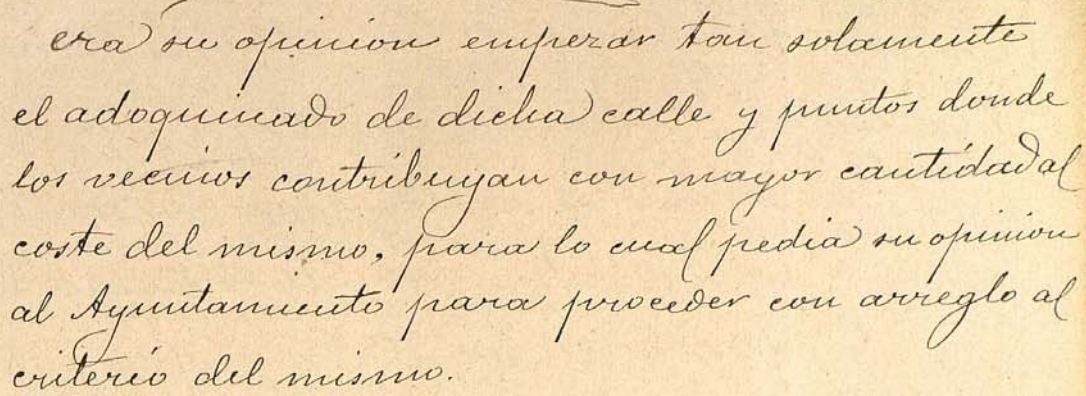 era su opinion empezar tan solamente
el adoquinado de dicha calle y puntos donde
los vecinos contribuyan con mayor cantidad al
coste del mismo, para lo cual pedia su opinion
al Ayuntamiento para proceder con arreglo al
criterio del mismo.